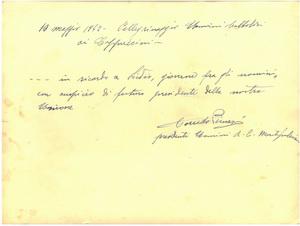 10 maggio 1952 - Pellegrinaggio Uomini Cattolici
ai Cappuccini -
--- in ricordo a , giovane fra gli uomini,
con auspicio di futuro presidente della nostra
Unione
presidente Uomini A. C.